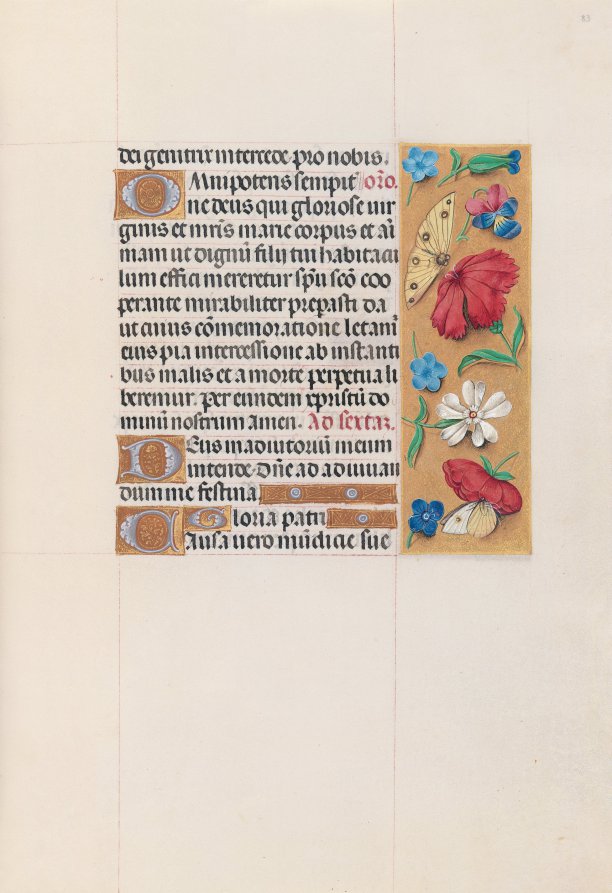 83
dei genitrix intercede pro nobis.
Omnipotens sempit̄ or̄o.
ne deus qui gloriose vir
ginis et mr̄is marie corpus et ai
mam ut dignū filij tui habitacu
lum effici mereretur sp̄u sc̄o coo
perante mirabiliter preparasti da
ut cuius cōmemoratione letam̄
eius pia intercessione ab instanti
bus malis et a morte perpetua li
beremur. Per eundem xpristū do
minū nostrum Amen. Ad sextaz.
Deus in adiutoriū meum
intende. Dn̄e ad adiuvan
dum me festina
Gloria patri
Causa vero mūdicie sue